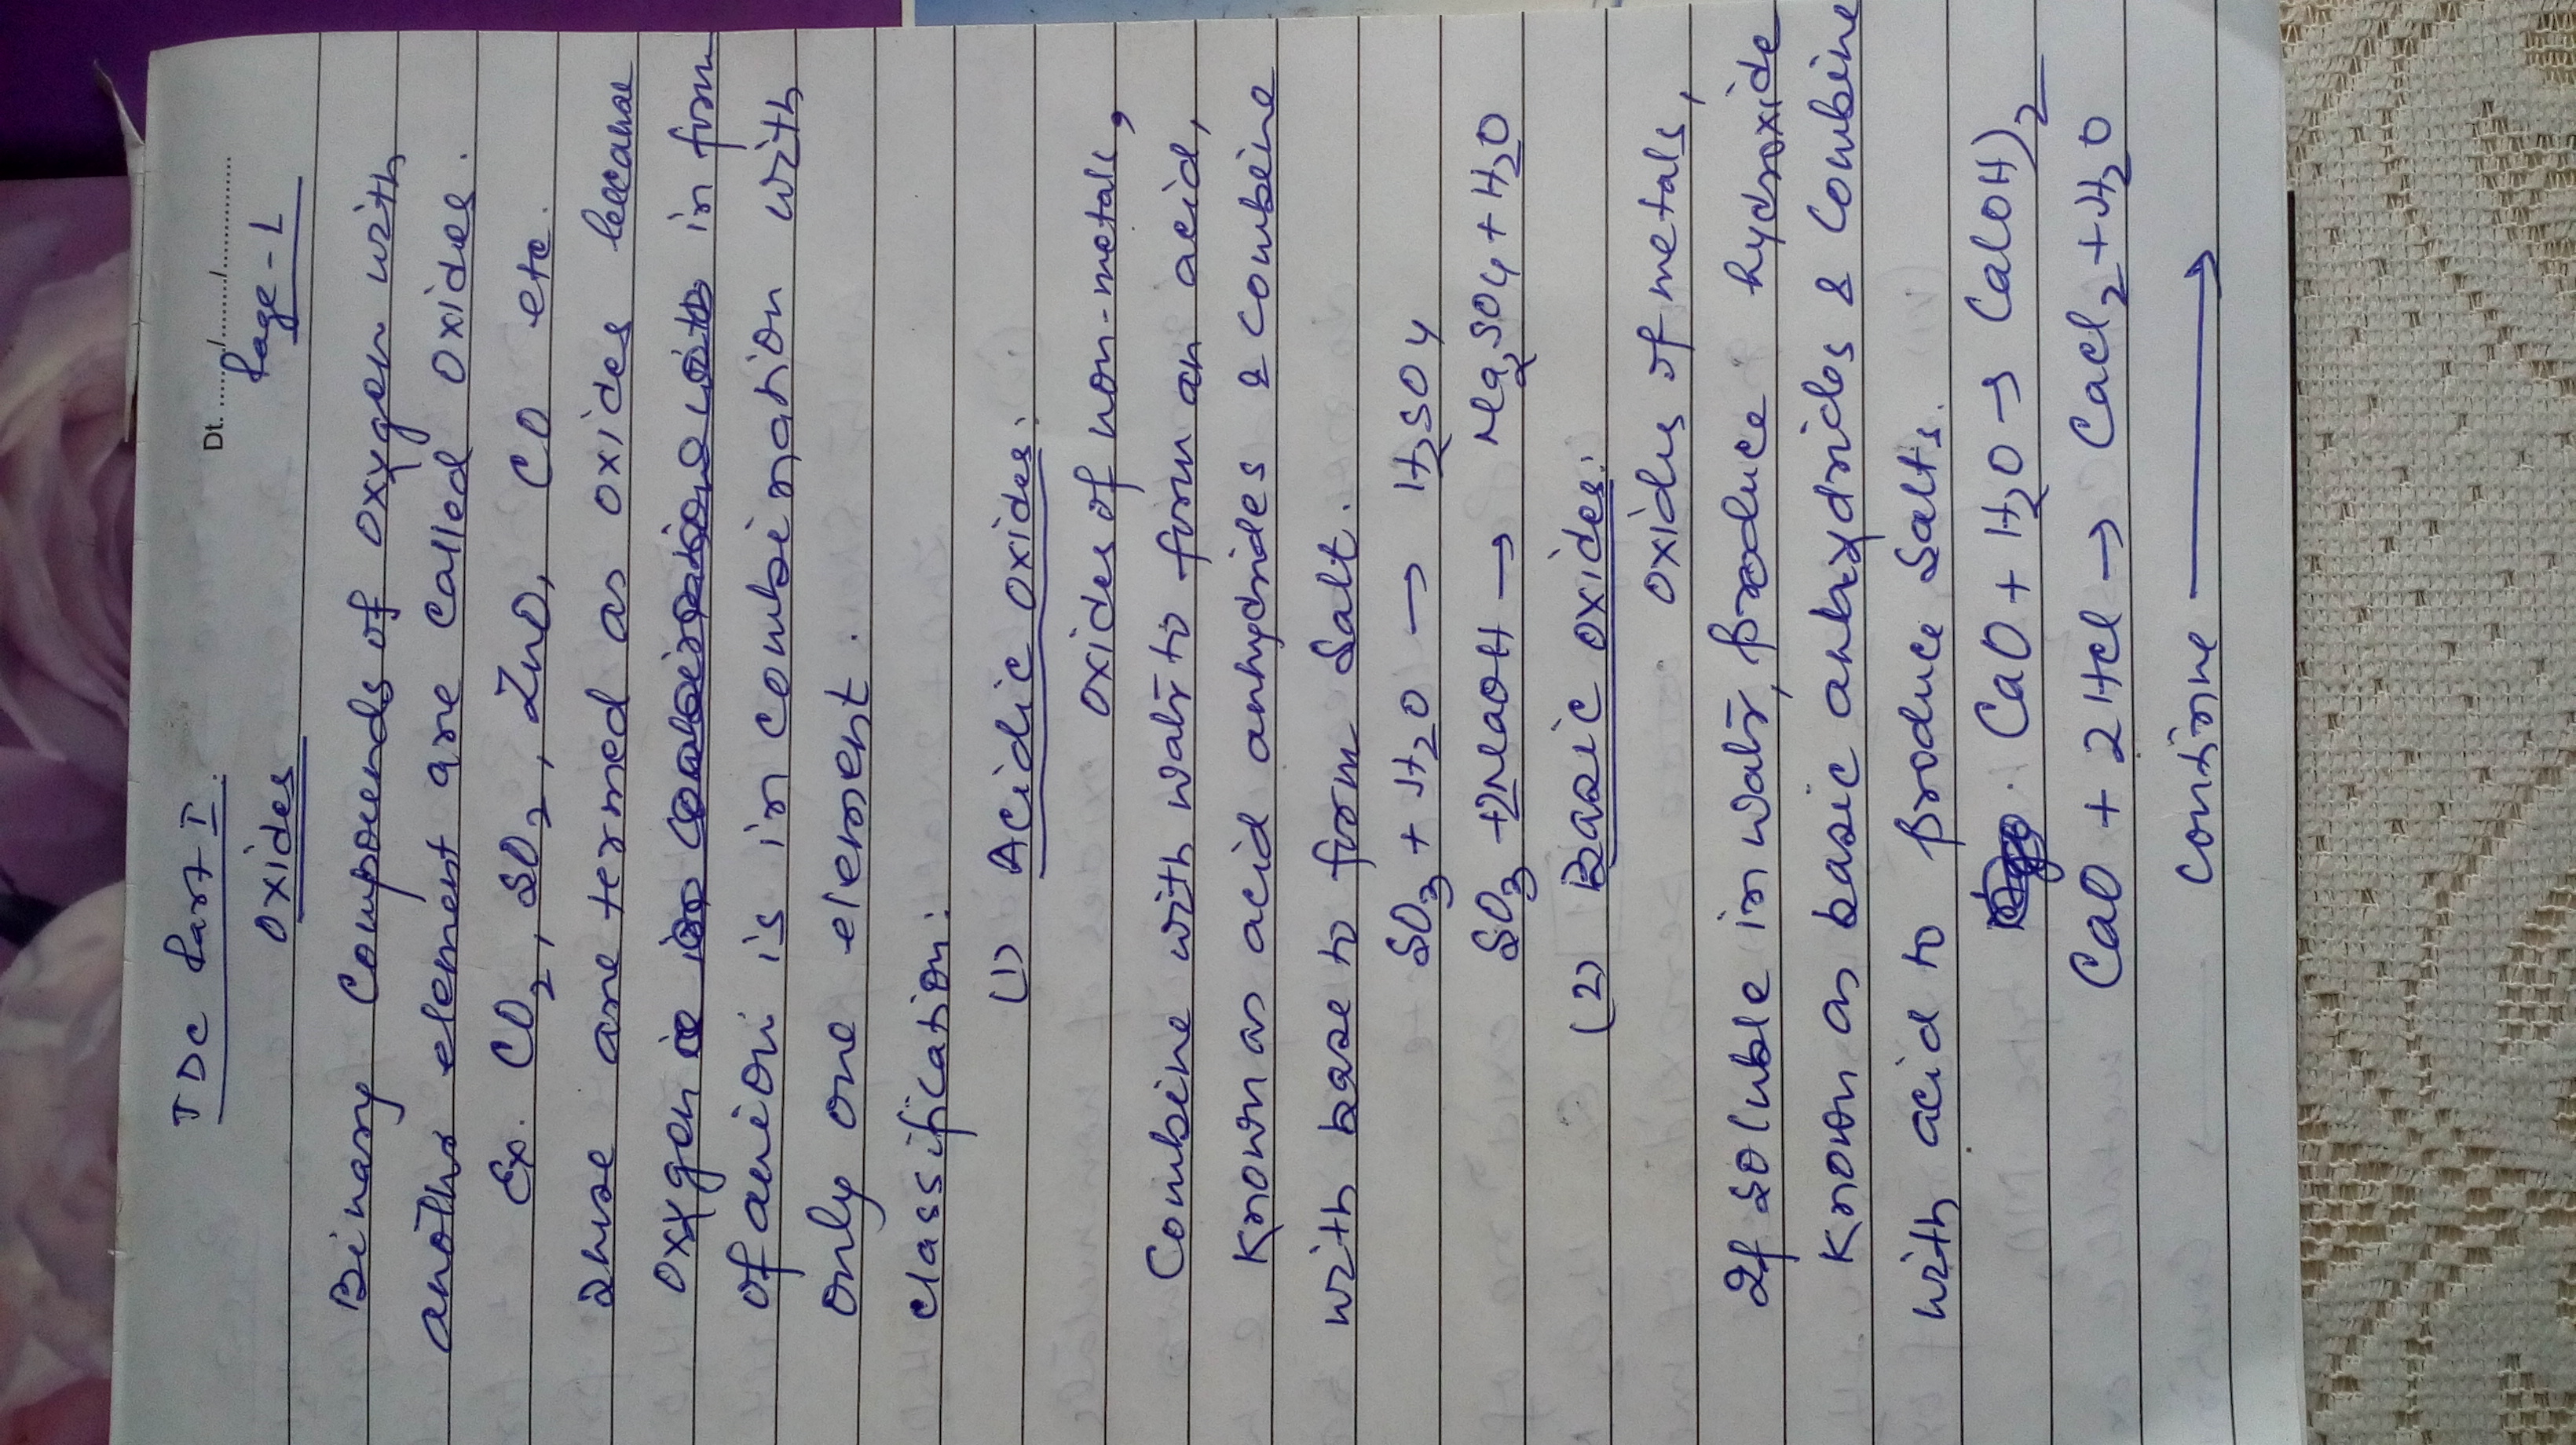 Dt. ......./......./.......
TDC Part I. Page-1
Oxides
Binary Compounds of oxygen with
another element are called oxides.
Ex. CO2, SO2, ZnO, CO etc.
These are termed as oxides because
oxygen in form
of anion is in combination with
only one element.
classification:
(1) Acidic oxides:
oxides of non-metals,
Combine with water to form an acid,
Known as acid anhydrides & combine
with base to form salt.
SO3 + H2O → H2SO4
SO3 + 2NaOH → Na2SO4 + H2O
(2) Basic oxides:
oxides of metals,
If soluble in water, produce hydroxide
Known as basic anhydrides & Combine
with acid to produce salts.
CaO + H2O → Ca(OH)2
CaO + 2HCl → CaCl2 + H2O
Continue →